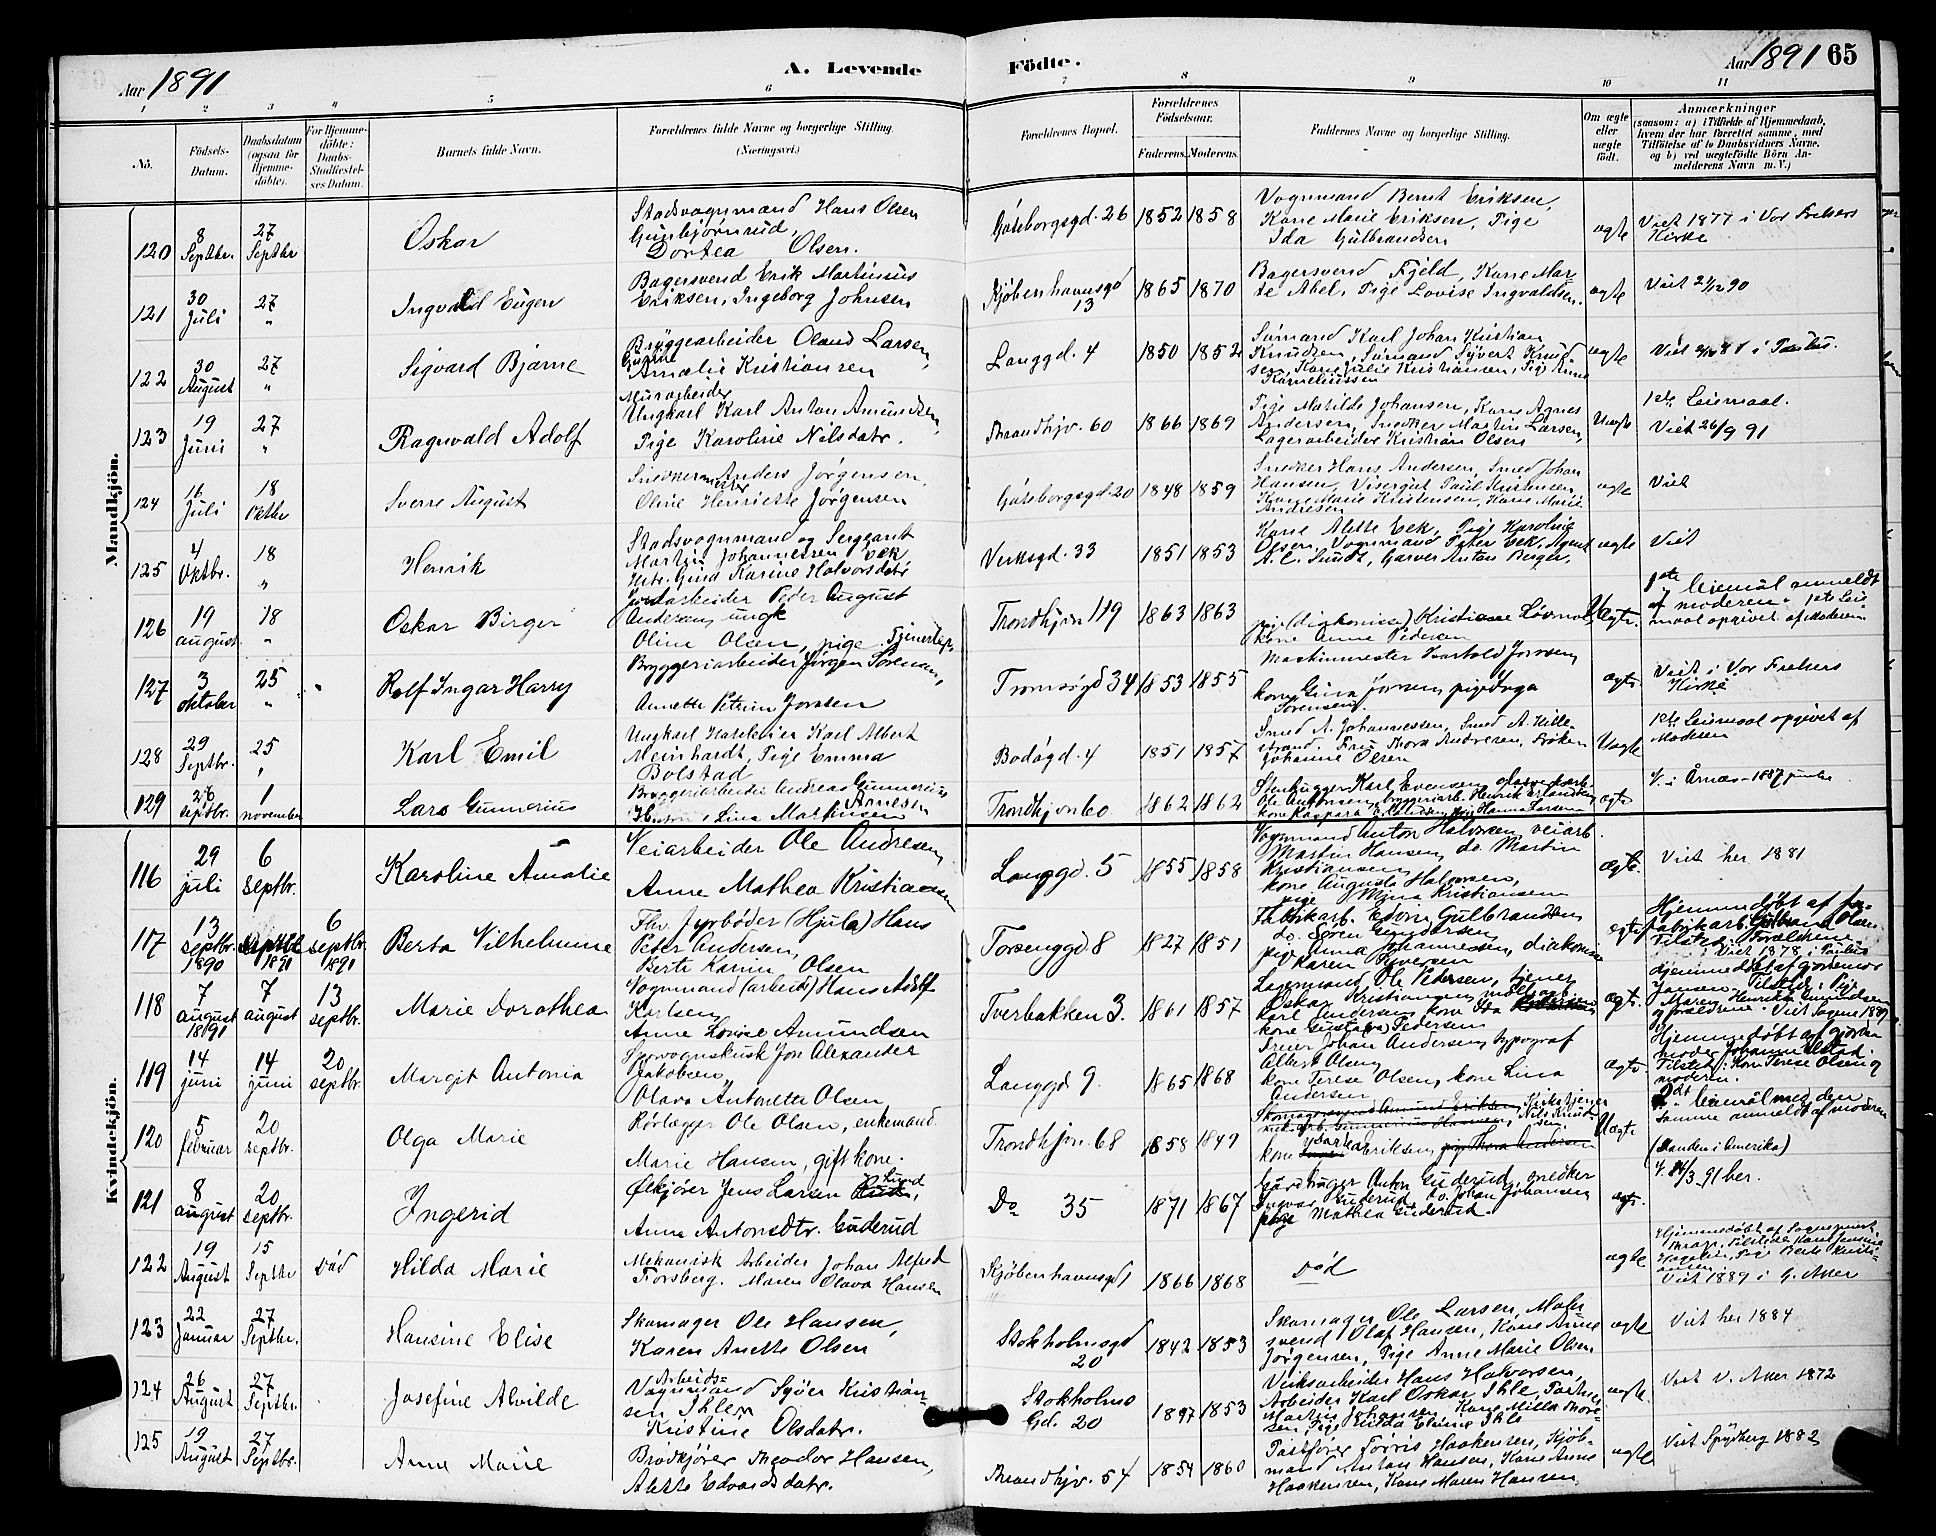 Aar 1891
A. Levende
Födte.
Aar 1891 65
1 2 3 4 5 6 7 8 9 10 11
No.
Födsels-
Datum.
Daabsdatum
(ogsaa for
Hjemme-
döbte).
For Hjemme-
döbte:
Daabs-
Stadfæstel-
ses Datum.
Barnets fulde Navn.
Forældrenes fulde Navne og borgerlige Stilling.
(Næringsvei.)
Forældrenes Bopæl.
Forældrenes
Födselsaar.
Faderens. Moderens.
Faddernes Navne og borgerlige Stilling.
Om ægte
eller
uægte
født.
Anmærkninger
(saasom: a) i Tilfælde af Hjemmedaab,
hvem der har forrettet samme, med
Tilföielse af to Daabsvidners Navne,
og b) ved uægtefödte Börn An-
melderens Navn m. V.)
Mandkjön.
120 8 Septbr. 27 Septbr Oskar
Stadsvognmand Hans Olsen
Gunbjørnrud,
Dortea Olsen.
Göteborgsgd. 26 1852 1858
Vognmand Bernt Eriksen,
Kone Marie Eriksen, Pige
Ida Gulbrandsen
ægte
Viet 1877 i Vor Frelsers
Kirke
121 30 Juli 27 " Ingvald Eugen
Bagersvend Erik Martinius
Eriksen, Ingeborg Johnsen
Kjöbenhavnsgd
13
1865 1870
Bagersvend Fjeld, Kone Mar-
te Abel, Pige Lovise Ingvaldsen.
ægte
Viet 2/12 90
122 30 August 27 " Sigvard Bjarne
Bryggearbeider Oland Larsen,
Amalie Kristiansen
Langgd. 4 1850 1852
Sömand Karl Johan Kristian
Knudsen, Sömand Syvert Knud-
sen, Kone Julie Kristiansen, Pige Anne
Korneliussen
ægte
123 19 Juni 27 " Ragnvald Adolf
Murarbeider
Ungkarl Karl Anton Amundsen,
Pige Karoline Nilsdatr.
Trondhjv. 60 1866 1869
Pige Matilde Johansen, Kone Agnes
Andersen, Snedker Martin Larsen,
Lagerarbeider Kristian Olsen
Uægte
1ste Leiemaal.
Viet 26/9 91
124 16 Juli 18 Oktbr Sverre August
Snedkermester Anders Jörgensen,
Oline Henriette Jörgensen
Göteborgsgd. 20 1848 1859
Snedker Hans Andersen, Smed Johan
Hansen, Visergut Paul Kristensen,
Kone Marie Kristensen, Kone Marie
Andresen
ægte
Viet
125 4 Oktbr. 18 " Henrik
Stadsvognmand og Sergeant
Martin Johannesen Eek
Hstr. Gina Karine Halvorsdatr
Verksgd. 33 1851 1853
Kone Alette Eek, Pige Karoline
Olsen, Vognmand Peter Eek, Agent
A. C. Sundt, Garver Anton Berger,
ægte
Viet
126 19 august 18 " Oskar Birger
Jordarbeider Peder August
Andersen, ungk
Oline Olsen, pige
Trondhjvn 119 1863 1863
pige (Diakonisse) Kristiane Lövvold,
kone Anne Pedersen
Uægte.
1ste leiemål anmeldt
af moderen. 1ste Lei
maal opgivet af Moderen
127 3 oktober 25 " Rolf Ingar Harry
Bryggeriarbeider Jörgen Sörensen,
Annette Petrine Jonsen
Tromsøgd 34 1853 1855
Maskinmester Hartold Jonsen,
kone Gina Jonsen, pige Inga
Sörensen
ægte
Viet i Vor Frelsers
Kirke
128 29 Septbr. 25 " Karl Emil
Ungkarl Karl Albert
Meinhardt, Pige Emma
Bolstad
Bodögd. 4 1851 1857
Smed A. Johannessen, Smed A. Hille-
strand. Fru Thora Andresen, Fröken
Johanne Olsen
Uægte
1ste Leiemaal opgivet af
Moderen
129 26 septbr. 1 november Lars Gunnerius
Bryggeriarbeider Andreas Gunnerius
Arnesen
Lina Martinsen
Trondhjvn 60 1862 1862
Stenhugger Karl Evensen,
Ole Antonsen,
ægte
V. i Årnæs 1887
Kvindekjön.
116 29 juli 6 septbr. Karoline Amalie
Veiarbeider Ole Andresen,
Anne Mathea Kristiansen
Langgd. 5 1855 1858
Vognmand Anton Halvorsen, veiarb.
Martin Hansen, do. Martin
Kristiansen,
kone Augusta Halvorsen,
pige Mina Kristiansen
ægte.
Viet her 1881
117 13 septbr. 1890 septbr 1891 6 septbr. 1891 Berta Vilhelmine
Fhv. fyrböder (Hjula) Hans
Peter Andersen,
Berte Karine Olsen
Torsenggd 8 1827 1851
Fabrikarb. Edvin Gulbrandsen
do. Sören Gundersen,
pige Anna Johannesen, diakonisse
Karen Syversen
ægte
Hjemmedöbt af fa-
brikarb. Gulbrand Olsen
Tilstede: Forældrene.
Viet 1878 i Paulus
118 7 august 1891 7 august 13 septbr. Marie Dorothea
Vognmand (arbeids) Hans Adolf
Karlsen,
Anne Lovise Amundsen
Tverbakken 3. 1861 1857
Lagermand Ole Pedersen, tjener
Oskar Kristiansen,
Karl Andersen, kone Ida
kone Gustava Pedersen
ægte.
Hjemmedöbt af gjordemor
Jansen. Tilstede: Pige
Maren Henrikke Amundsen
og forældrene. Viet Sogne 1889
119 14 juni 14 juni 20 septbr. Margit Antonia
Sporvognskusk Jon Alexander
Jakobsen,
Olava Antonette Olsen
Langgd 9. 1865 1868
Dreier Johan Andersen, typograf
Albert Olsen,
kone Terese Olsen, kone Lina
Andersen
ægte
Hjemmedöbt af gjorde
moder Johanne Ulstad.
Tilstede: Kone Terese Olsen og
moderen.
120 5 februar 20 septbr. Olga Marie
Rörlægger Ole Olsen, enkemand.
Marie Hansen, gift kone.
Trondhjvn. 68 1858 1849
Skomagersvend Amund Eriksen, Kirketjener
Nils Knud-
sen.
kone Eriksen, pige Thora Andersen
Uægte
2det leiemål med den
samme anmeldt af moderen
(Manden i Amerika)
121 8 august 20 septbr. Ingerid
Ølkjörer Jens Larsen Lund,
Anne Antonsdtr. Guderud
Do 35 1871 1867
Gårdbruger Anton Guderud, snedker
Ingvar Guderud, do. Johan Johansen
pige Mathea Guderud.
ægte.
V. 14/3 91 her.
122 19 August 15 Septbr Död Hilda Marie
Mekanisk Arbeider Johan Alfred
Forsberg. Maren Olava Hansen
Kjöbenhavnsgd 1866 1868
Död
ægte
Viet 1889 i G. Aker
123 22 Januar 27 Septbr. Hansine Elise
Skomager Ole Hansen,
Karen Anette Olsen
Stokholmsgd
20
1842 1853
Skomager Ole Larsen, Maler
svend Olaf Hansen, Kone Anne
Jörgensen, Pige Anne Marie Olsen
ægte
Viet her 1884
124 26 August 27 Septbr. Josefine Alvilde
Arbeids-
Vognmand Syver Kristian-
sen Ihlen
Kristine Olsdatr.
Stokholms
Gd. 20
1847 1853
Verksarbeider Hans Halvorsen,
Arbeider Karl Oskar Ihle,
Martin Johansen, Kone Milla Thore-
sen, Pige Hilda Elvine Ihle
ægte
Viet V. Aker 1872
125 19 August 27 Septbr. Anne Marie
Brödkjörer Theodor Hansen,
Alette Edvardsdatr.
Trondhjv. 54 1854 1860
Postförer Törris Haakensen, Kjöb-
mand Anton Hansen, Kone Anne
Haakensen, Kone Maren Hansen
ægte
Viet Spydberg 1882